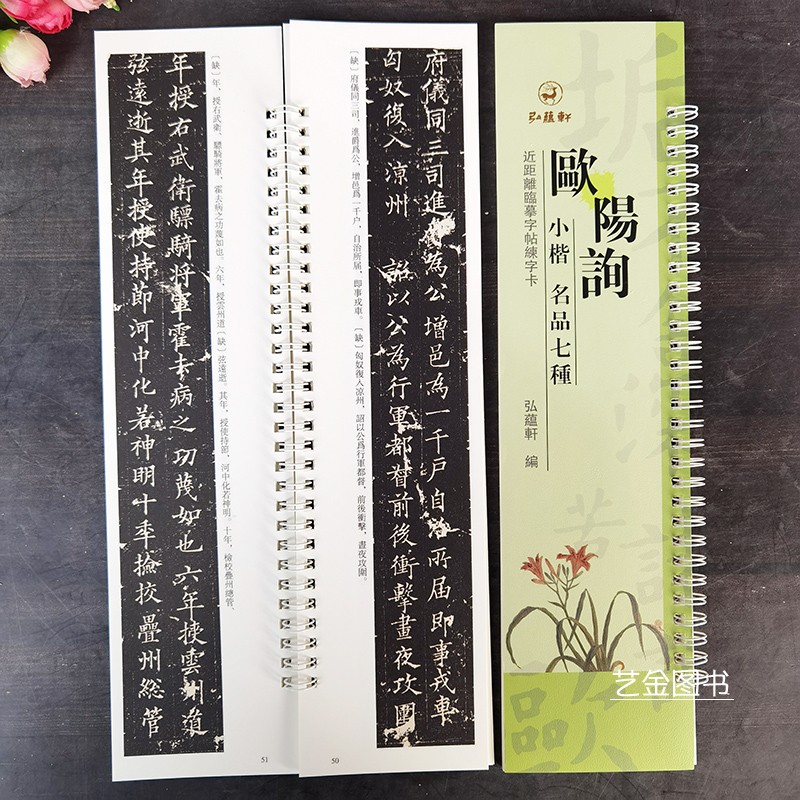 弘蘊軒
歐陽詢
小楷 名品七種
近距離臨摹字帖練字卡
弘蘊軒 編
府儀同三司進爵為公增邑為一千戶自治所届即事戎車
匈奴復入涼州 詔以公為行軍都督前後衝擊晝夜攻圍
〔缺〕府儀同三司，進爵爲公，增邑爲一千户，自治所届，即事戎車。〔缺〕匈奴復入凉州，詔以公爲行軍都督，前後衝擊，晝夜攻圍。
50
〔缺〕年，授右武衛，驃騎將軍，霍去病之功蔑如也。六年，授雲州道〔缺〕弦遠逝。其年，授使持節，河中化若神明。十年，檢校疊州總管。
年授右武衛驃騎將軍霍去病之功蔑如也六年授雲州道
弦遠逝其年授使持節河中化若神明十年撿挍疊州総管
51
艺金图书